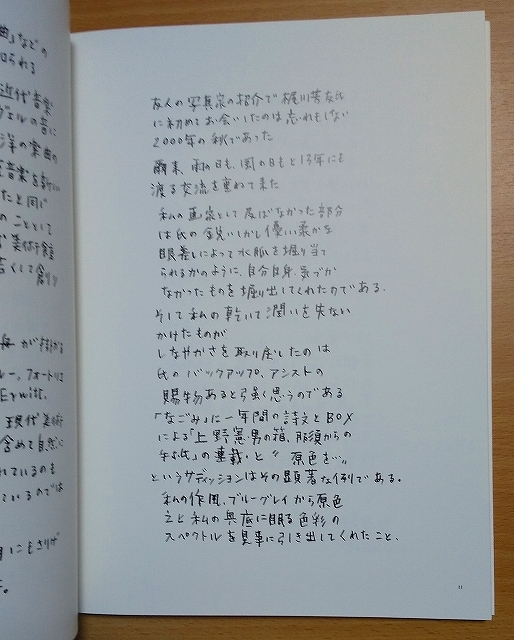 曲」など の
知られる
近代音楽
ヴェルの音に
洋の楽曲の
音楽を
たと同じ
のこととして
美術館
吉くして創り
が掛かる
ルー、フォートリエ
Erwitt.
現代美術
含めて自然に
れているのも
ているのでは
にもさりげ
す。
友人の写真家の紹介で梶川芳友氏
に初めてお会いしたのは忘れもしない
2000年の秋であった
爾来、雨の日も、風の日もと13年にも
渡る交流を重ねて来た
私の画家として及ばなかった部分
は氏の鋭いしかし優しい柔かな
眼差しによって水脈を掘り当て
られるかのように、自分自身、気づか
なかったものを掘り出してくれたのである.
そして私の乾いて潤いを失ない
かけたものが
しなやかさを取り戻したのは
氏のバックアップ、アシストの
賜物あると強く思うのである
「なごみ」に一年間の詩文とBOX
による「上野憲男の箱、那須からの
手紙」の連載、と〝原色を…〟
というサディッションはその顕著な例である.
私の作風、ブルーグレイから原色
えと私の奥底に眠る色彩の
スペクトルを見事に引き出してくれたこと、
11